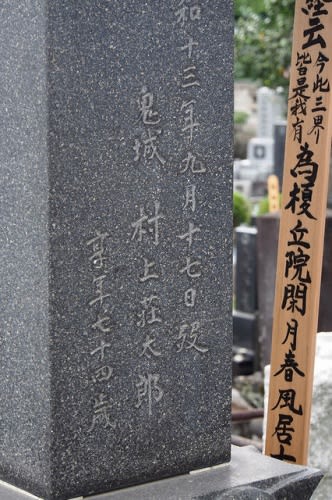 和十三年九月十七日歿
鬼城 村上荘太郎
享年七十四歳
経云今此三界
皆是我有
為榎丘院閑月春風居士